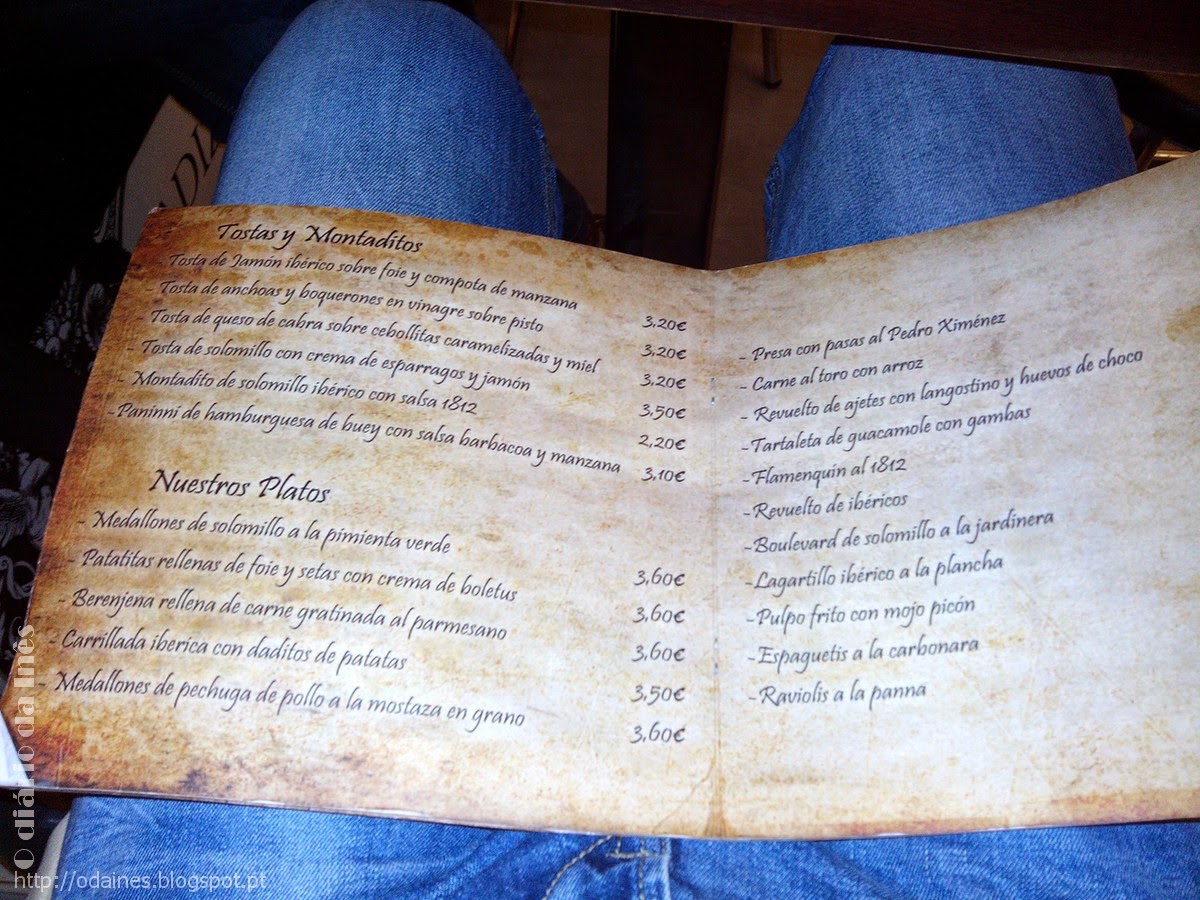 Tostas y Montaditos
- Tosta de Jamón ibérico sobre foie y compota de manzana 3,20€
- Tosta de anchoas y boquerones en vinagre sobre pisto 3,20€
- Tosta de queso de cabra sobre cebollitas caramelizadas y miel 3,20€
- Tosta de solomillo con crema de esparragos y jamón 3,50€
- Montadito de solomillo ibérico con salsa 1812 2,20€
-Paninni de hamburguesa de buey con salsa barbacoa y manzana 3,10€
Nuestros Platos
- Medallones de solomillo a la pimienta verde 3,60€
- Patatitas rellenas de foie y setas con crema de boletus 3,60€
- Berenjena rellena de carne gratinada al parmesano 3,60€
- Carrillada iberica con daditos de patatas 3,50€
- Medallones de pechuga de pollo a la mostaza en grano 3,60€
- Presa con pasas al Pedro Ximénez
- Carne al toro con arroz
- Revuelto de ajetes con langostino y huevos de choco
-Tartaleta de guacamole con gambas
-Flamenquin al 1812
-Revuelto de ibéricos
-Boulevard de solomillo a la jardinera
-Lagartillo ibérico a la plancha
-Pulpo frito con mojo picón
-Espaguetis a la carbonara
-Raviolis a la panna
O diário da Inês
http://odaines.blogspot.pt